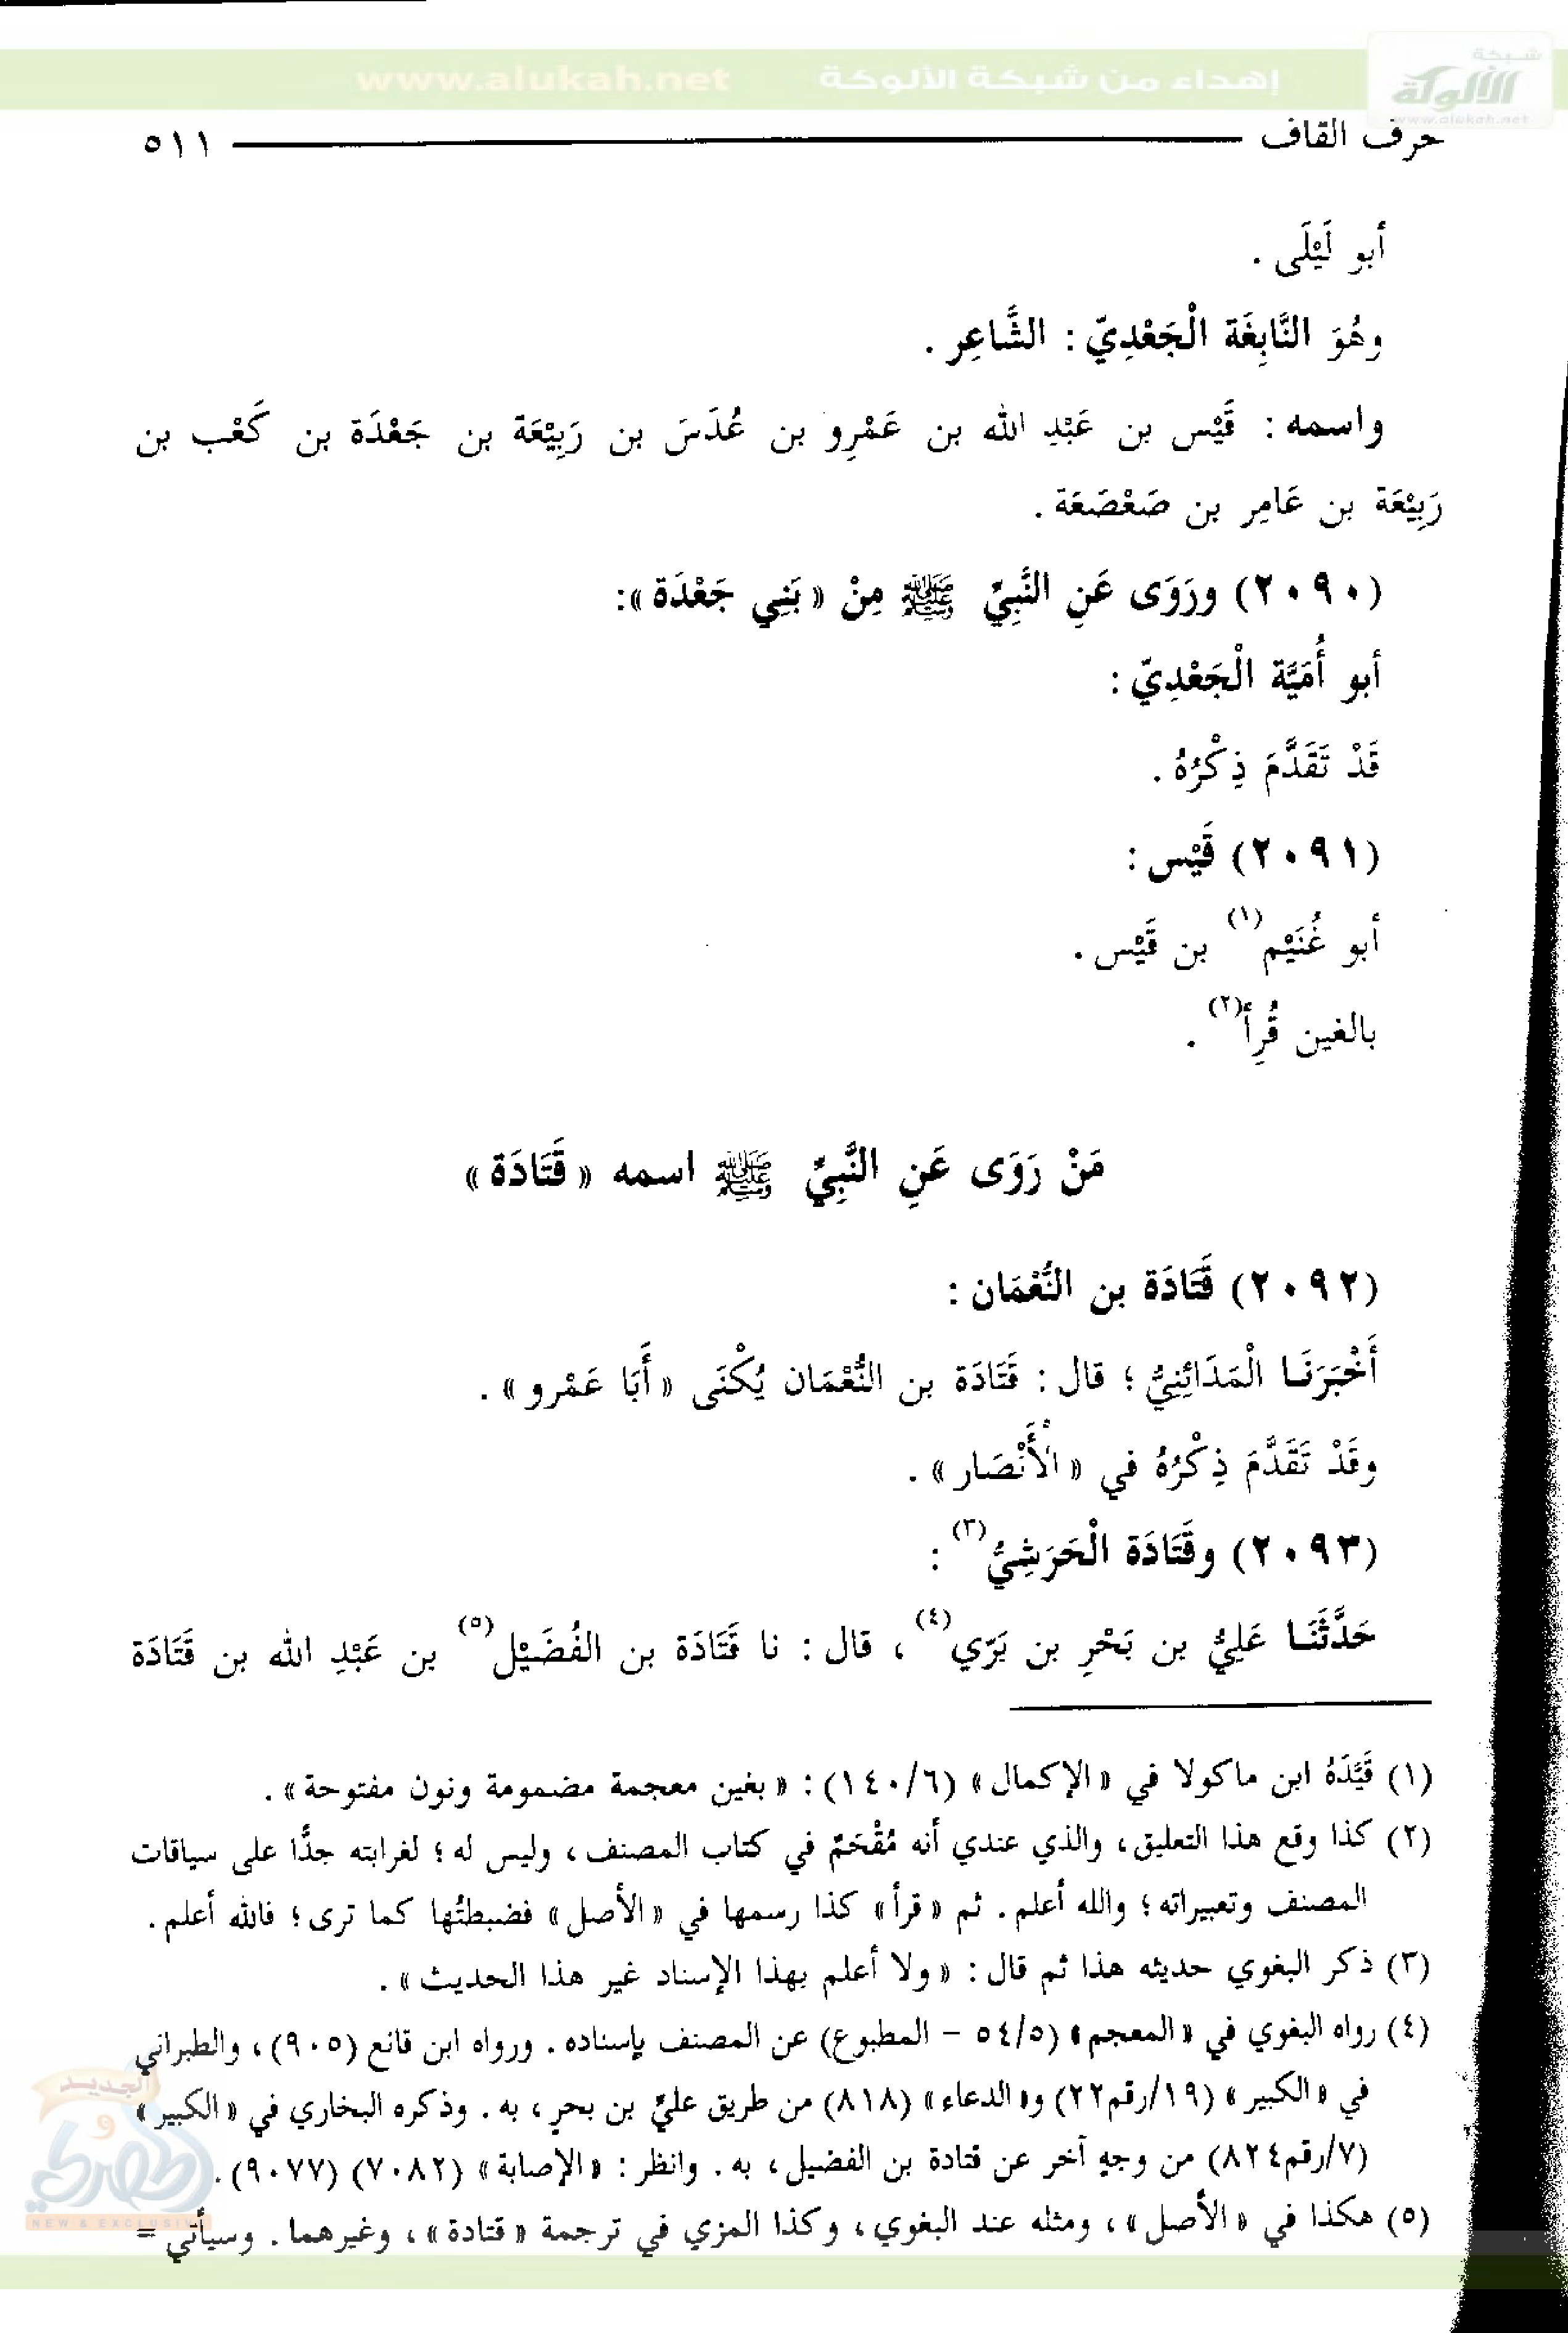 www.alukah.net إهداء من شبكة الألوكة
شبكة
الألوكة
www.alukah.net
حرف القاف ٥١١
أبو لَيْلَى .
وهُوَ النَّابِغَة الْجَعْدِيّ : الشَّاعِر .
واسمه : قَيْس بن عَبْدِ الله بن عَمْرِو بن عُدَسَ بن رَبِيْعَة بن جَعْدَة بن كَعْب بن
رَبِيْعَة بن عَامِر بن صَعْصَعَة .
(٢٠٩٠) ورَوَى عَنِ النَّبِيِّ ﷺ مِنْ « بَنِي جَعْدَة »:
أبو أُمَيَّة الْجَعْدِيّ :
قَدْ تَقَدَّمَ ذِكْرُهُ .
(٢٠٩١) قَيْس :
أبو غُنَيْم(١) بن قَيْس .
بالغين قُرِأَ(٢) .
مَنْ رَوَى عَنِ النَّبِيِّ ﷺ اسمه « قَتَادَة »
(٢٠٩٢) قَتَادَة بن النُّعْمَان :
أَخْبَرَنَا الْمَدَائِنِيُّ ؛ قال : قَتَادَة بن النُّعْمَان يُكْنَى « أَبَا عَمْرو » .
وقَدْ تَقَدَّمَ ذِكْرُهُ في « الْأَنْصَار » .
(٢٠٩٣) وقَتَادَة الْحَرَشِيُّ(٣) :
حَدَّثَنَا عَلِيُّ بن بَحْرِ بن بَرّي(٤) ، قال : نا قَتَادَة بن الفُضَيْل(٥) بن عَبْدِ الله بن قَتَادَة
(١) قَيَّدَهُ ابن ماكولا في « الإكمال » (٦/ ١٤٠) : « بغين معجمة مضمومة ونون مفتوحة » .
(٢) كذا وقع هذا التعليق، والذي عندي أنه مُقْحَمٌ في كتاب المصنف، وليس له؛ لغرابته جدًّا على سياقات
المصنف وتعبيراته؛ والله أعلم. ثم « قرأ » كذا رسمها في « الأصل » فضبطتُها كما ترى؛ فالله أعلم.
(٣) ذكر البغوي حديثه هذا ثم قال : « ولا أعلم بهذا الإسناد غير هذا الحديث » .
(٤) رواه البغوي في « المعجم » (٥/ ٥٤ – المطبوع) عن المصنف بإسناده. ورواه ابن قانع (٩٠٥)، والطبراني
في « الكبير » (١٩/رقم٢٢) و« الدعاء » (٨١٨) من طريق عليِّ بن بحرٍ، به. وذكره البخاري في « الكبير »
(٧/رقم٨٢٤) من وجهٍ آخر عن قتادة بن الفضيل، به. وانظر : « الإصابة » (٧٠٨٢) (٩٠٧٧) .
(٥) هكذا في « الأصل »، ومثله عند البغوي، وكذا المزي في ترجمة « قتادة »، وغيرهما. وسيأتي =
الجديد
و
الحصري
NEW & EXCLUSIVE